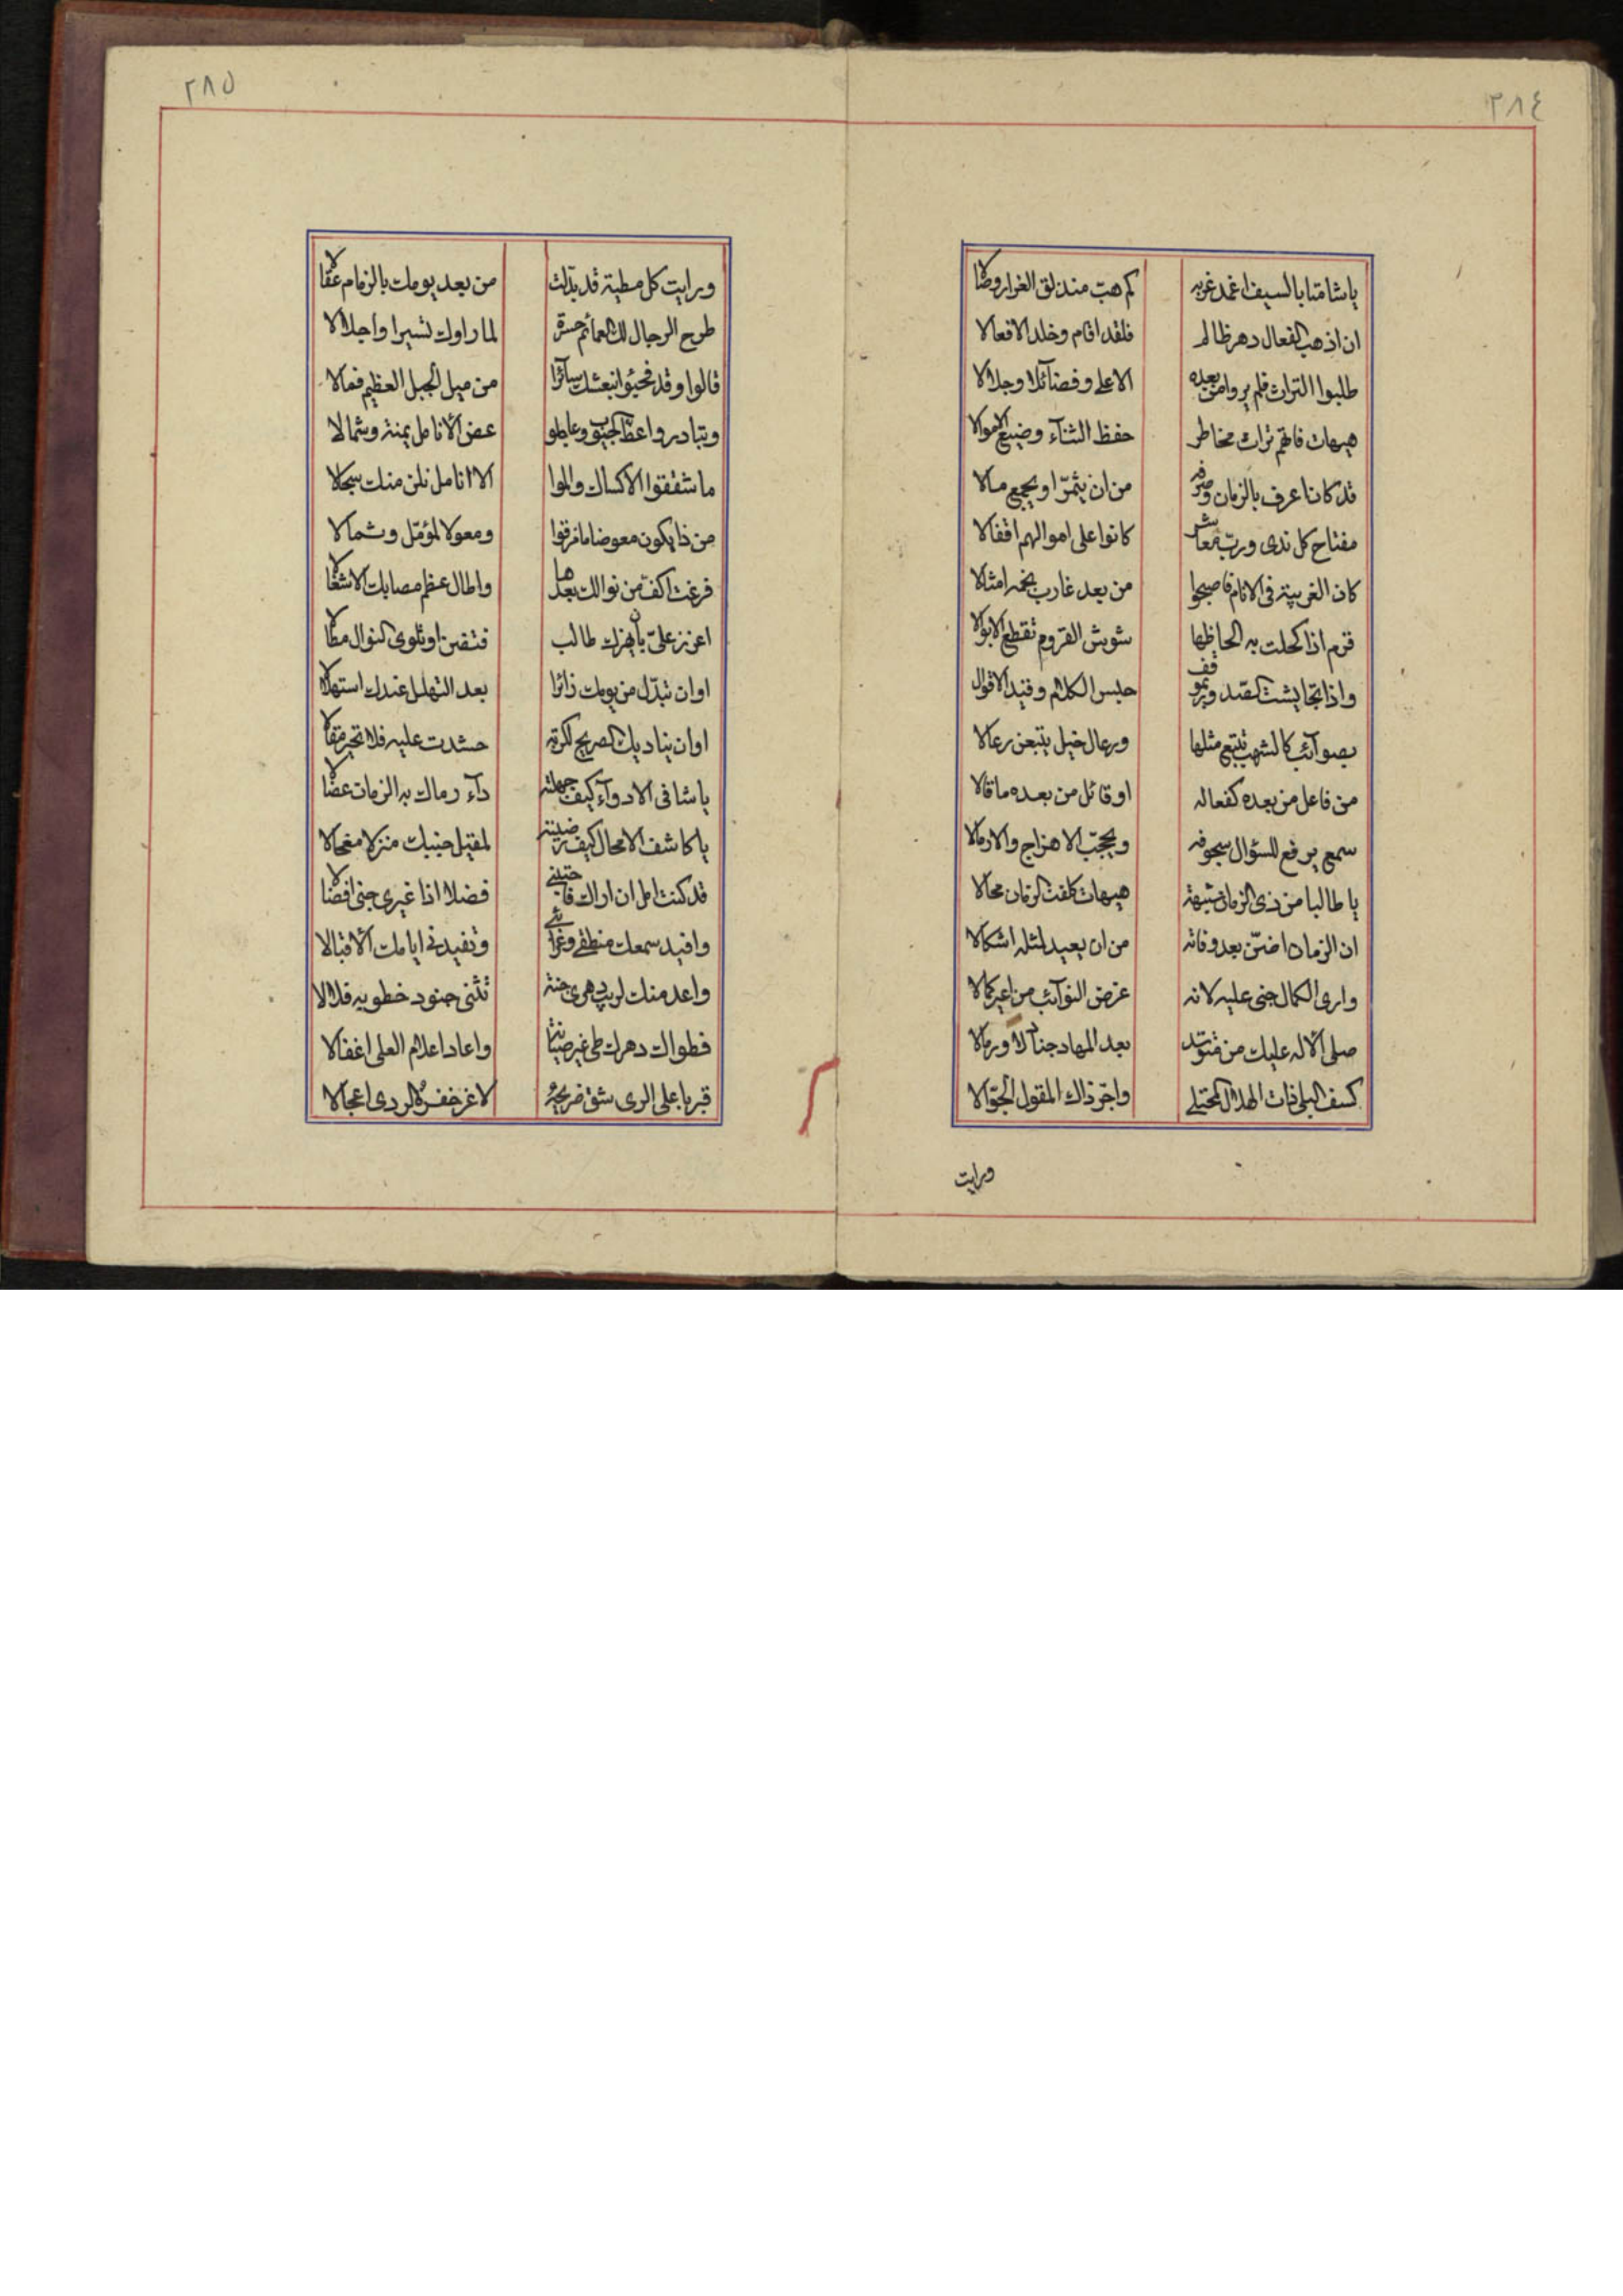 ٢٨٤
يا شامتا بالسيف اغمد غربه كم هب منذلق الغرار وصالا
ان اذهب الفعال دهر ظالم فلقد اقام وخلد الافعالا
طلبوا التراث فلم يروا من بعده الا على وفضائلا وجلالا
هيهات فاتهم تراث مخاطر حفظ الثناء وضيع الاموالا
قد كان اعرف بالزمان وصرفه من ان يثمّر او يجمع مالا
مفتاح كل ندى وربّ معاشر كانوا على اموالهم اقفالا
كان الغريبة في الانام فاصبحوا من بعد غارب نجمه امثالا
قرم اذا كحلت به الحاظها شوش القروم تقطع الابوالا
واذا تجايشت الصدور بموقف حبس الكلام وقيد الاقوال
بصوائب كالشهب تتبع مثلها ورعال خيل يتبعن رعالا
من فاعل من بعده كفعاله او قائل من بعده ما قالا
سمع يرفع للسؤال سجوفه ويحجّب الاهزاج والارمالا
يا طالبا من ذى الزمان شبيهه هيهات كلفت الزمان محالا
ان الزمان اضنّ بعد وفاته من ان يعيد لمثله اشكالا
وارى الكمال جنى عليه لانه غرض النوائب من اعير كمالا
صلى الاله عليك من متوسد بعد المهاد جنادلا ورمالا
كسف البلى ذات الهلال المجتلى واجرّ ذاك المقول الجوّالا
ورايت
٢٨٥
ورايت كل مطية قد بدّلت من بعد يومك بالزمام عقالا
طرح الرجال لك العمائم حسرة لما راوك تسير او اجلالا
قالوا وقد فجئوا بنعشك سائرا من ميل الجبل العظيم فمالا
وتبادروا عظ الجيوب وعاجلوا عض الانامل يمنة وشمالا
ما شققوا الا كساك والموا الا انامل نلن منك سجالا
من ذا يكون معوضا ما مزقوا ومعولا لمؤمّل وشمالا
فرغت اكفّ من نوالك بعدها واطال عظم مصابك الاشغالا
اعزز علىّ بان يهزك طالب فتضن او تلوى النوال مطالا
او ان تبدّل من يومك زائرا بعد التهلل عندك استهلالا
او ان يناديك الصريخ لكربة حشدت عليه فلا تحير مقالا
يا شافى الادواء كيف جهلته داء رماك به الزمان عضالا
يا كاشف الامحال كيف رضيته لمقيل جنبيك منزلا ممحالا
قد كنت امل ان اراك فاجتنى فضلا اذا غيرى جنى افضالا
وافيد سمعك منطقى وغرائبى وتفيدنى ايامك الاقبالا
واعد منك لريب دهرى جنة تثنى جنود خطوبه فلالا
فطواك دهرك طى غير صيانة واعاد اعلام العلى اغفالا
قبر باعلى الرى شق ضريحه لاغر خفره الردى اعجالا